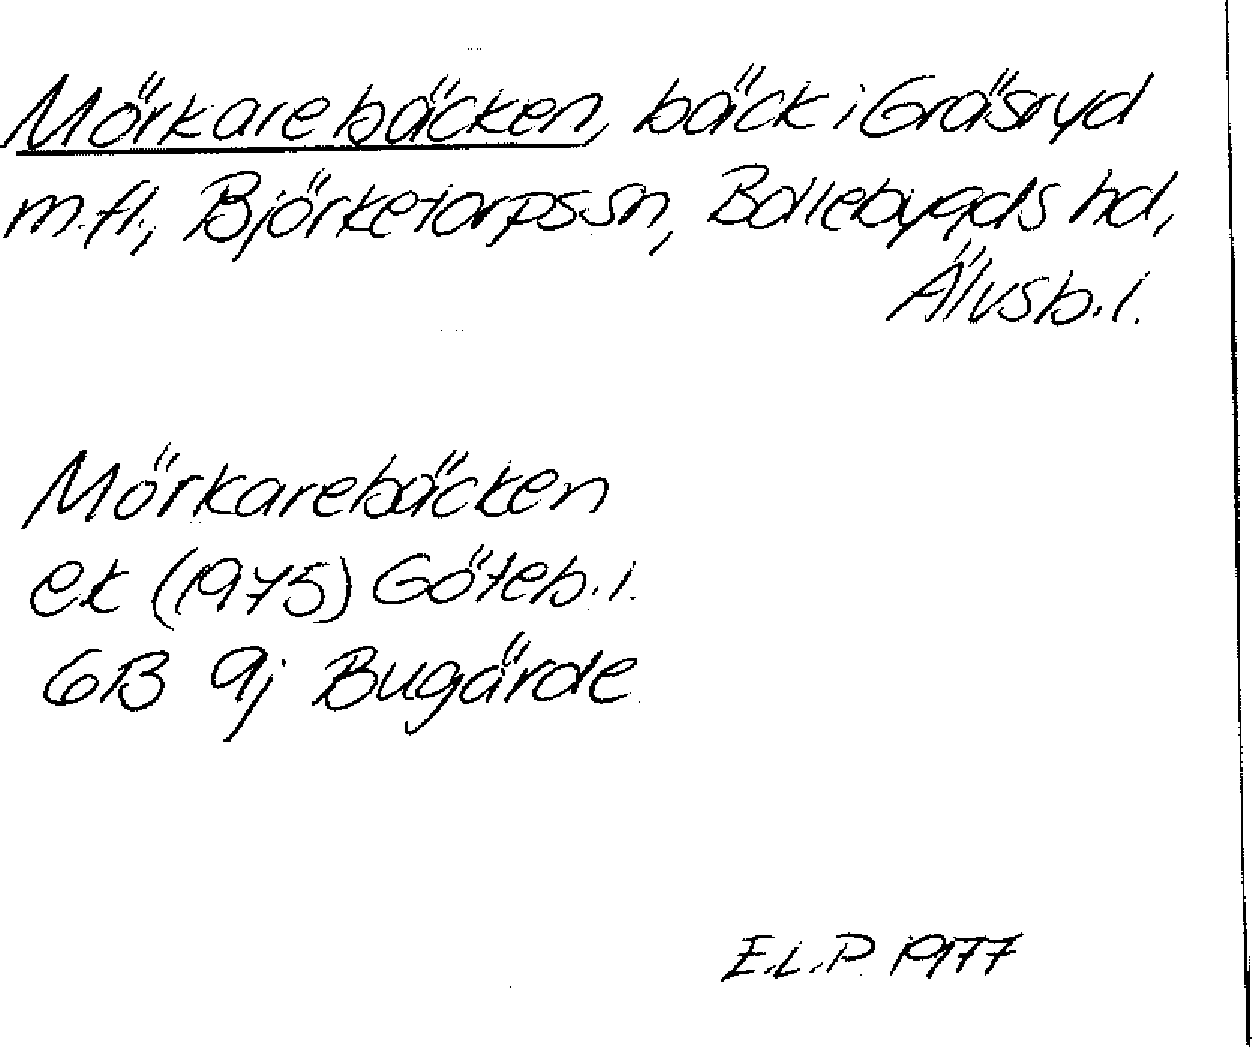 Mörkarebäcken, bäck i Gräsryd
m.fl., Björketorps sn, Bollebygds hd,
Älvsb. l.
Mörkarebäcken
ek (1975) Göteb. l.
6B 9j Bugärde
E.L.P. 1977